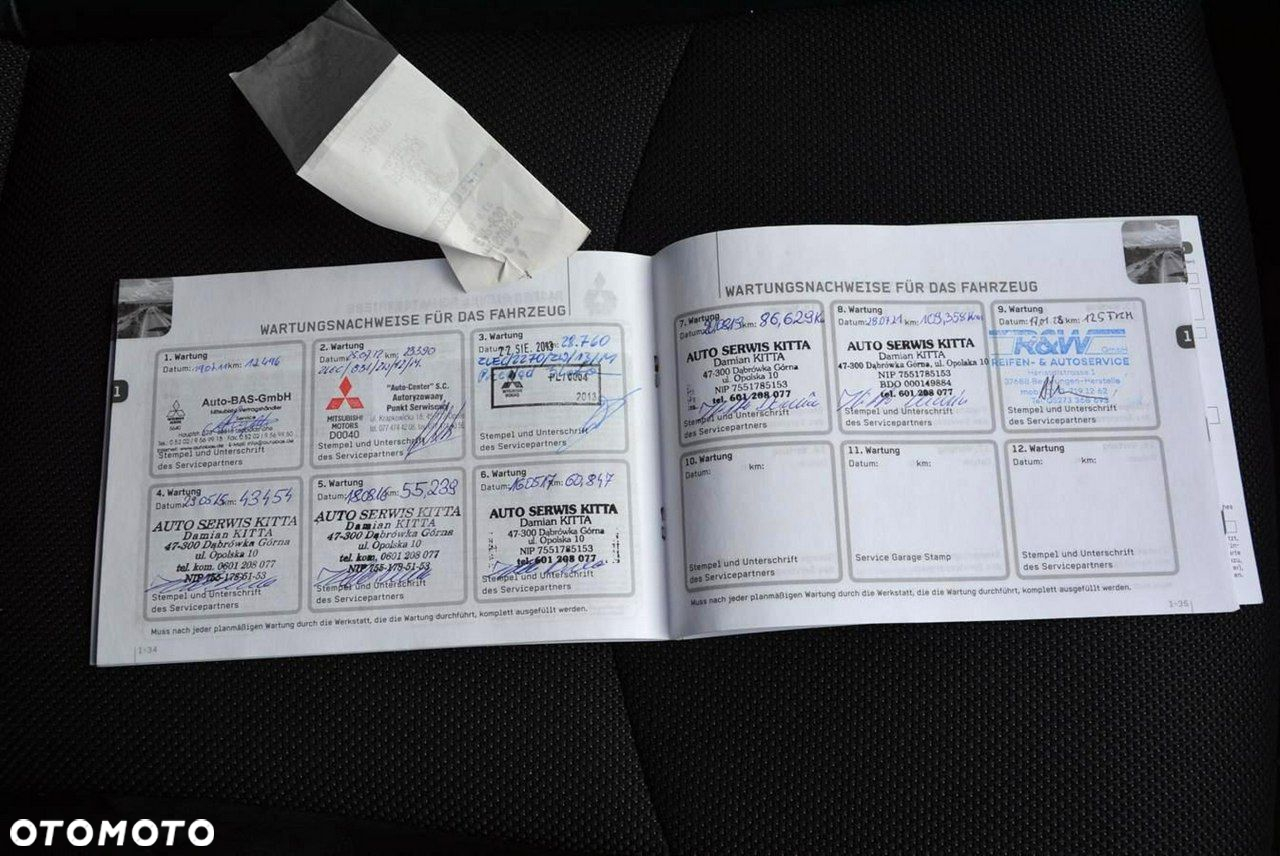 WARTUNGSNACHWEISE FÜR DAS FAHRZEUG
1. Wartung
Datum: km: 12 416
Auto-BAS-GmbH
Stempel und Unterschrift
des Servicepartners
2. Wartung
Datum: 25.07.12 km: 23390
MITSUBISHI
MOTORS
D0040
"Auto-Center" S.C.
Autoryzowany
Punkt Serwisowy
Stempel und Unterschrift
des Servicepartners
3. Wartung
Datum: 22 SIE. 2013 28.760
2013
Stempel und Unterschrift
des Servicepartners
4. Wartung
Datum: 29.05.15 km: 43454
AUTO SERWIS KITTA
Damian KITTA
47-300 Dąbrówka Górna
ul. Opolska 10
tel. kom. 0601 208 077
NIP 755-178-51-53
Stempel und Unterschrift
des Servicepartners
5. Wartung
Datum: 180816 km: 55,239
AUTO SERWIS KITTA
Damian KITTA
47-300 Dąbrówka Górna
ul. Opolska 10
tel. kom. 0601 208 077
NIP 755-178-51-53
Stempel und Unterschrift
des Servicepartners
6. Wartung
Datum: 160517 km: 60,847
AUTO SERWIS KITTA
Damian KITTA
47-300 Dąbrówka Górna
ul. Opolska 10
NIP 7551785153
tel. 601 208 077
Stempel und Unterschrift
des Servicepartners
Muss nach jeder planmäßigen Wartung durch die Werkstatt, die die Wartung durchführt, komplett ausgefüllt werden.
1-34
WARTUNGSNACHWEISE FÜR DAS FAHRZEUG
7. Wartung
Datum: km: 86,629
AUTO SERWIS KITTA
Damian KITTA
47-300 Dąbrówka Górna
ul. Opolska 10
NIP 7551785153
tel. 601 208 077
Stempel und Unterschrift
des Servicepartners
8. Wartung
Datum: 28.07.21 km: 109,358 km
AUTO SERWIS KITTA
Damian KITTA
47-300 Dąbrówka Górna, ul. Opolska 10
NIP 7551785153
BDO 000149884
tel. 601 208 077
Stempel und Unterschrift
des Servicepartners
9. Wartung
Datum: km:
R&W GmbH
REIFEN- & AUTOSERVICE
Stempel und Unterschrift
des Servicepartners
10. Wartung
Datum: km:
Stempel und Unterschrift
des Servicepartners
11. Wartung
Datum: km:
Service Garage Stamp
12. Wartung
Datum: km:
Stempel und Unterschrift
des Servicepartners
Muss nach jeder planmäßigen Wartung durch die Werkstatt, die die Wartung durchführt, komplett ausgefüllt werden.
1-35
1
1
OTOMOTO